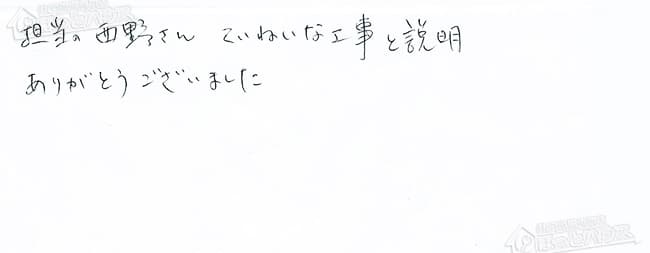 担当の西野さん ていねいな工事と説明
ありがとうございました